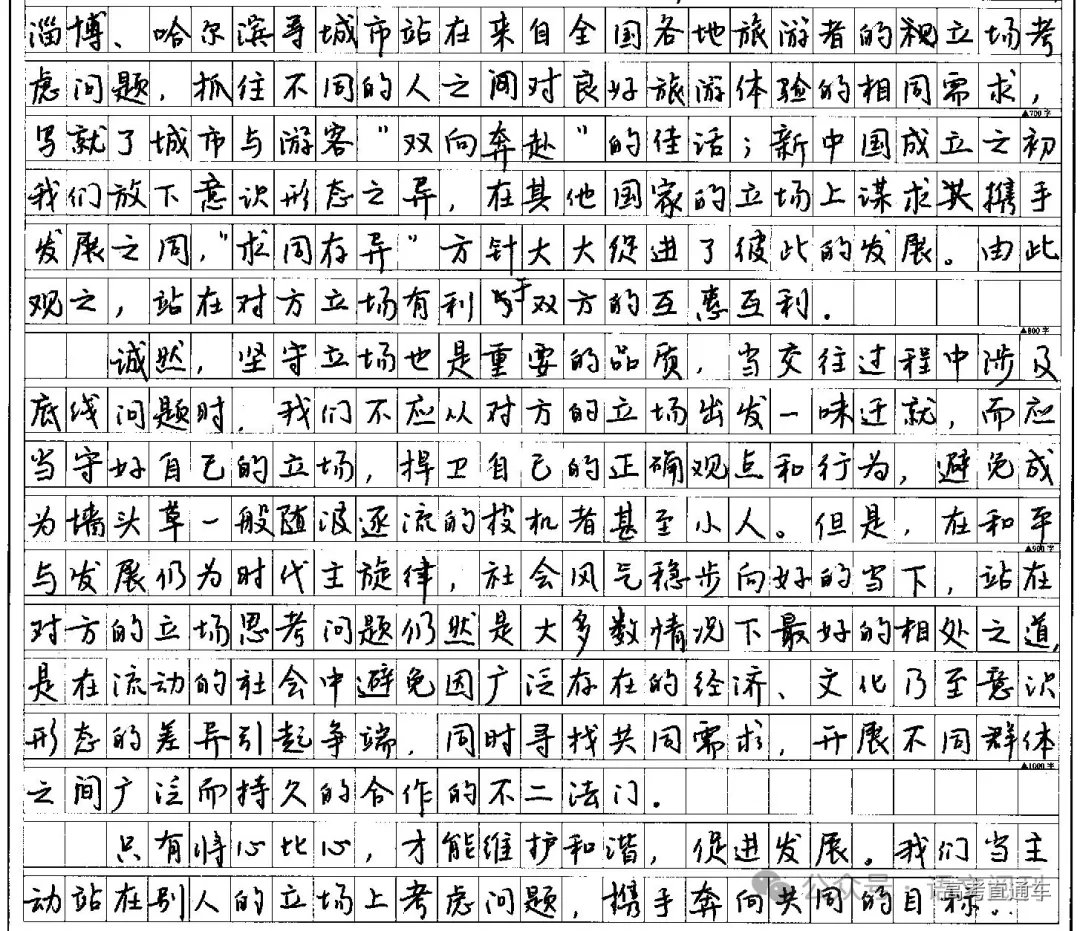 淄博、哈尔滨等城市站在来自全国各地旅游者的视立场考
虑问题，抓住不同的人之间对良好旅游体验的相同需求，
▲700字
写就了城市与游客“双向奔赴”的佳话；新中国成立之初
我们放下意识形态之异，在其他国家的立场上谋求共携手
发展之同，“求同存异”方针大大促进了彼此的发展。由此
观之，站在对方立场有利于双方的互惠互利.
▲800字
诚然，坚守立场也是重要的品质，当交往过程中涉及
底线问题时，我们不应从对方的立场出发一味迁就，而应
当守好自己的立场，捍卫自己的正确观点和行为，避免成
为墙头草一般随波逐流的投机者甚至小人。但是，在和平
▲900字
与发展仍为时代主旋律，社会风气稳步向好的当下，站在
对方的立场思考问题仍然是大多数情况下最好的相处之道，
是在流动的社会中避免因广泛存在的经济、文化乃至意识
形态的差异引起争端，同时寻找共同需求，开展不同群体
▲1000字
之间广泛而持久的合作的不二法门.
只有将心比心，才能维护和谐，促进发展。我们当主
动站在别人的立场上考虑问题，携手奔向共同的目标.
公众号·高考直通车